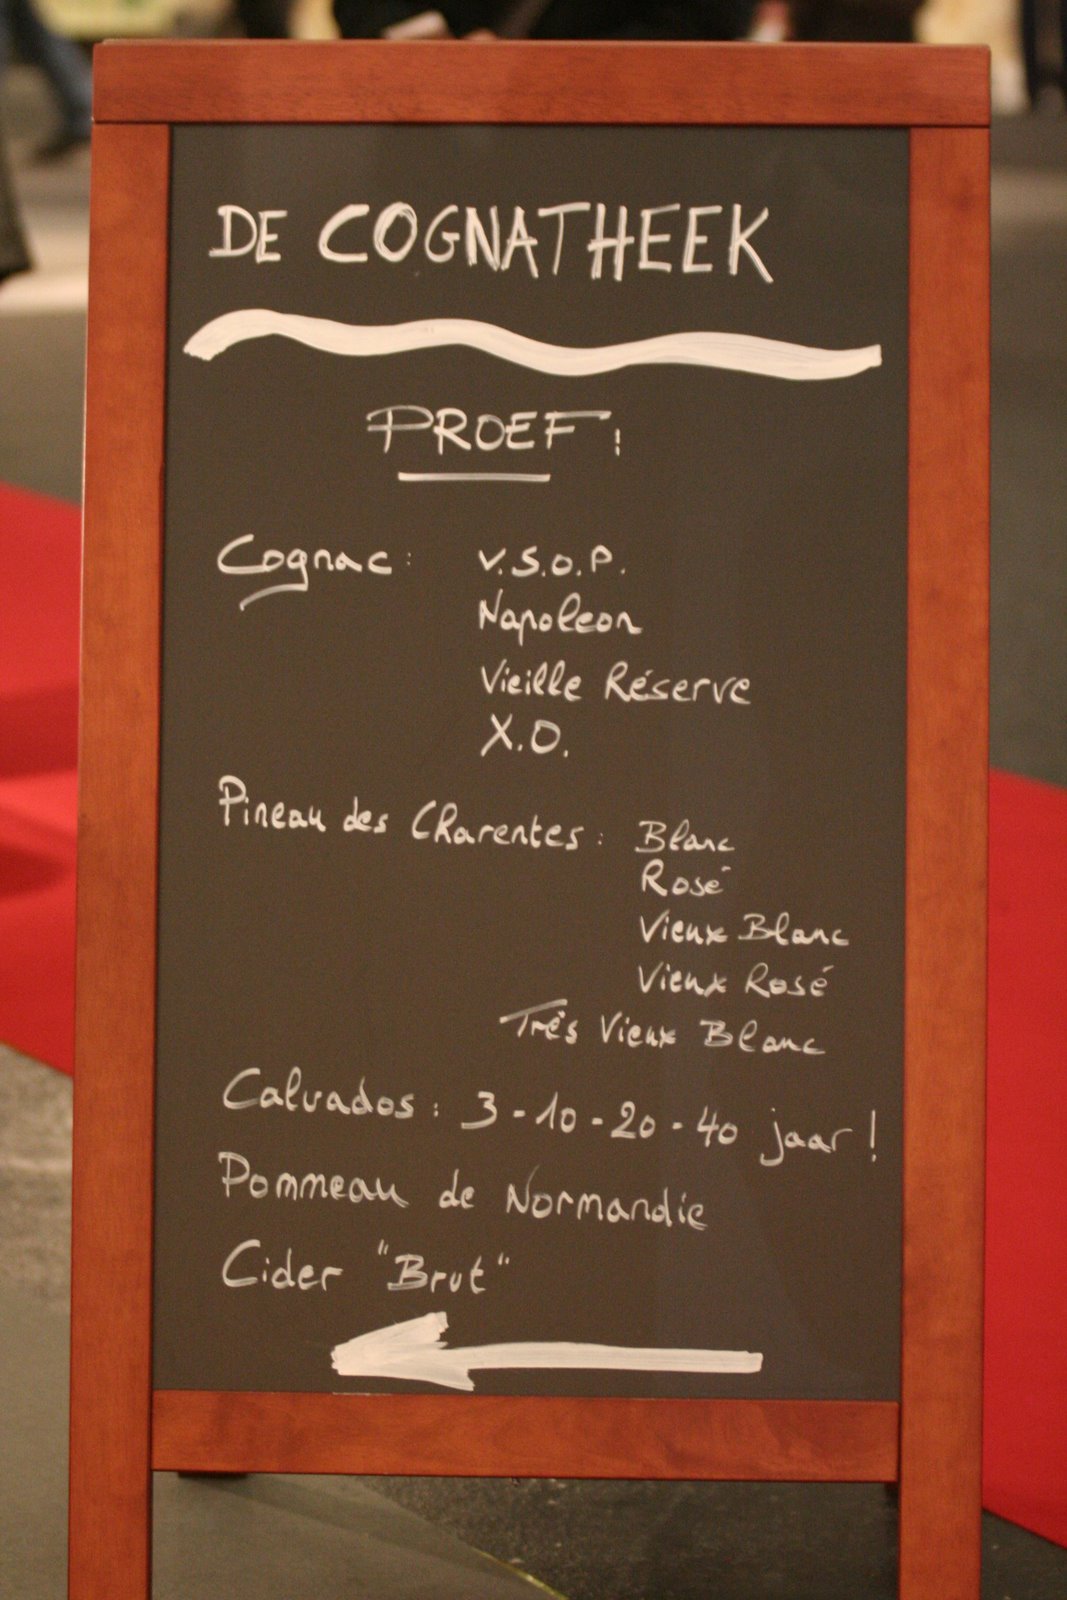 DE COGNATHEEK
PROEF:
Cognac: V.S.O.P.
Napoleon
Vieille Réserve
X.O.
Pineau des Charentes: Blanc
Rosé
Vieux Blanc
Vieux Rosé
Très Vieux Blanc
Calvados: 3-10-20-40 jaar!
Pommeau de Normandie
Cider "Brut"